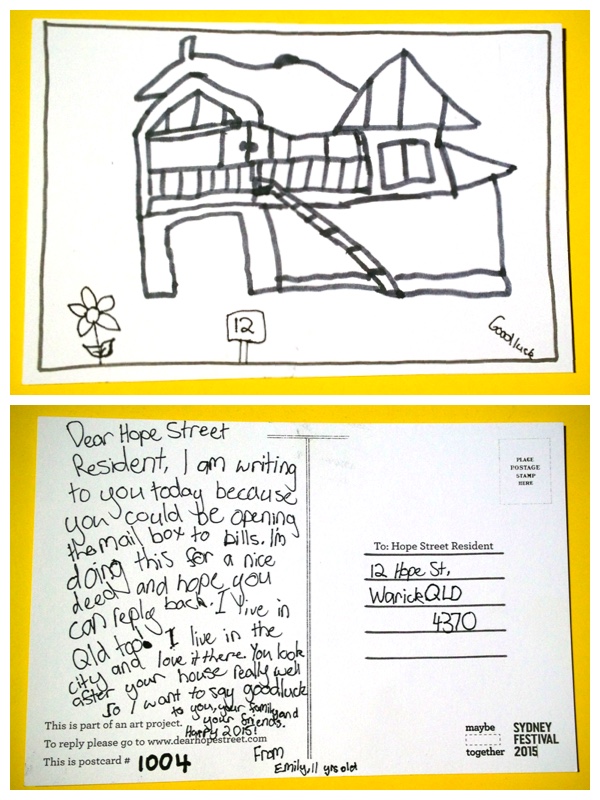 12
Goodluck
Dear Hope Street
Resident, I am writing
to you today because
you could be opening
the mail box to bills. I'm
doing this for a nice
deed and hope you
can reply back. I live in
Qld too. I live in the
city and love it there. You look
after your house really well
so I want to say goodluck
to you, your family and
your friends.
Happy 2015!
From
Emily, 11 yrs old
This is part of an art project.
To reply please go to www.dearhopestreet.com
This is postcard # 1004
PLACE
POSTAGE
STAMP
HERE
To: Hope Street Resident
12 Hope St,
Warick QLD
4370
maybe
together
SYDNEY
FESTIVAL
2015